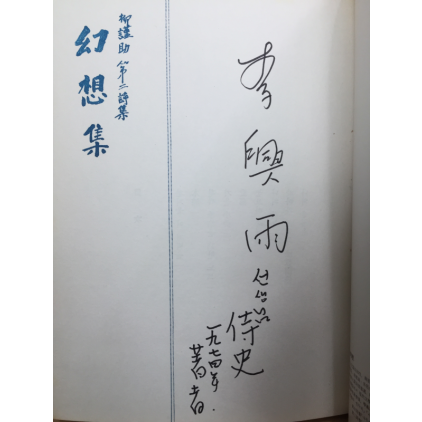 李興雨 선생님
侍史
一九七四年.
著者
柳謹助 第二詩集
幻想集